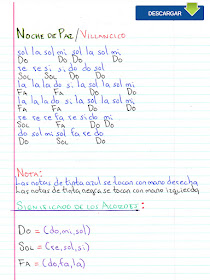 DESCARGAR
NOCHE DE PAZ/VILLANCICO
sol la sol mi sol la sol mi
DO DO DO DO
re re si si do do sol
SOL SOL DO DO
la la la do si la sol la sol mi
FA FA DO DO
la la la do si la sol la sol mi
FA FA DO DO
re re re fa re si do mi
SOL FA DO
do sol mi sol fa re do
DO SOL DO
NOTA:
Las notas de tinta azul se tocan con mano derecha
Las notas de tinta negra se tocan con mano izquierda
SIGNIFICADO DE LOS ACORDES:
DO = (do, mi, sol)
SOL = (re, sol, si)
FA = (do, fa, la)